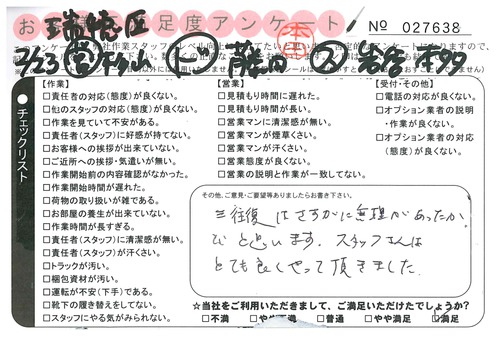 お 足度アンケート
瑞穂区
No 027638
2/23
チェックリスト
【作業】
□責任者の対応(態度)が良くない。
□他のスタッフの対応(態度)が良くない。
□作業を見ていて不安がある。
□責任者(スタッフ)に好感が持てない。
□お客様への挨拶が出来ていない。
□ご近所への挨拶・気遣いが無い。
□作業開始前の内容確認がなかった。
□作業開始時間が遅れた。
□荷物の取り扱いが雑である。
□お部屋の養生が出来ていない。
□作業時間が長すぎる。
□責任者(スタッフ)に清潔感が無い。
□責任者(スタッフ)が汗くさい。
□トラックが汚い。
□梱包資材が汚い。
□運転が不安(下手)である。
□靴下の履き替えをしてない。
□スタッフにやる気がみられない。
【営業】
□見積もり時間に遅れた。
□見積もり時間が長い。
□営業マンに清潔感が無い。
□営業マンが煙草くさい。
□営業マンが汗くさい。
□営業態度が良くない。
□営業の説明と作業が一致してない。
【受付・その他】
□電話の対応が良くない。
□オプション業者の説明・作業が良くない。
□オプション業者の対応(態度)が良くない。
その他、ご意見・ご要望等ありましたらお書き下さい。
三往復はさすがに無理があったか
なと思います。スタッフさんは
とても良くやって頂きました。
☆当社をご利用いただきまして、ご満足いただけたでしょうか?
□不満 □やや不満 □普通 □やや満足 □満足